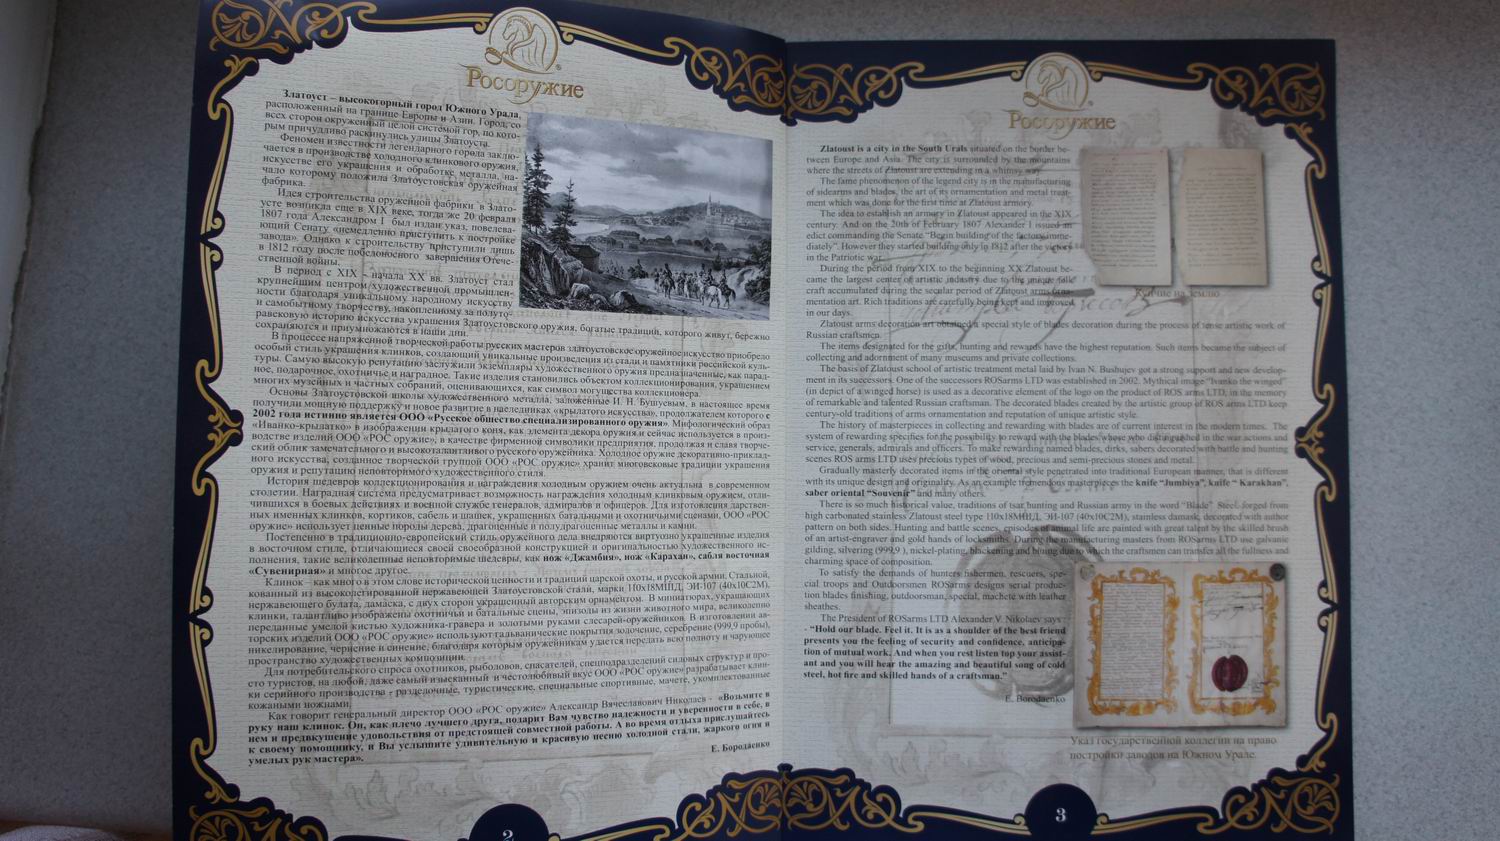 Росоружие
Златоуст – высокогорный город Южного Урала,
расположенный на границе Европы и Азии. Город, со
всех сторон окруженный целой системой гор, по кото-
рым причудливо раскинулись улицы Златоуста.
Феномен известности легендарного города заклю-
чается в производстве холодного клинкового оружия,
искусстве его украшения и обработке металла, на-
чало которому положила Златоустовская оружейная
фабрика.
Идея строительства оружейной фабрики в Злато-
усте возникла еще в XIX веке, тогда же 20 февраля
1807 года Александром I был издан указ, повелева-
ющий Сенату «немедленно приступить к постройке
завода». Однако к строительству приступили лишь
в 1812 году после победоносного завершения Отече-
ственной войны.
В период с XIX - начала XX вв. Златоуст стал
крупнейшим центром художественной промышлен-
ности благодаря уникальному народному искусству
и самобытному творчеству, накопленному за полуто-
равековую историю искусства украшения Златоустовского оружия, богатые традиций, которого живут, бережно
сохраняются и приумножаются в наши дни.
В процессе напряженной творческой работы русских мастеров златоустовское оружейное искусство приобрело
особый стиль украшения клинков, создающий уникальные произведения из стали и памятники российской куль-
туры. Самую высокую репутацию заслужили экземпляры художественного оружия предназначенные, как парад-
ное, подарочное, охотничье и наградное. Такие изделия становились объектом коллекционирования, украшением
многих музейных и частных собраний, оценивающихся, как символ могущества коллекционера.
Основы Златоустовской школы художественного металла, заложенные И. Н. Бушуевым, в настоящее время
получили мощную поддержку и новое развитие в наследниках «крылатого искусства», продолжателем которого с
2002 года истинно является ООО «Русское общество специализированного оружия». Мифологический образ
«Иванко-крылатко» в изображении крылатого коня, как элемента декора оружия и сейчас используется в произ-
водстве изделий ООО «РОС оружие», в качестве фирменной символики предприятия, продолжая и славя творче-
ский облик замечательного и высокоталантливого русского оружейника. Холодное оружие декоративно-приклад-
ного искусства, созданное творческой группой ООО «РОС оружие» хранит многовековые традиции украшения
оружия и репутацию неповторимого художественного стиля.
История шедевров коллекционирования и награждения холодным оружием очень актуальна в современном
столетии. Наградная система предусматривает возможность награждения холодным клинковым оружием, отли-
чившихся в боевых действиях и военной службе генералов, адмиралов и офицеров. Для изготовления дарствен-
ных именных клинков, кортиков, сабель и шашек, украшенных батальными и охотничьими сценами, ООО «РОС
оружие» использует ценные породы дерева, драгоценные и полудрагоценные металлы и камни.
Постепенно в традиционно-европейский стиль оружейного дела внедряются виртуозно украшенные изделия
в восточном стиле, отличающиеся своей своеобразной конструкцией и оригинальностью художественного ис-
полнения, такие великолепные неповторимые шедевры, как нож «Джамбия», нож «Карахан», сабля восточная
«Сувенирная» и многое другое.
Клинок – как много в этом слове исторической ценности и традиций царской охоты, и русской армии. Стальной,
кованный из высоколегированной нержавеющей Златоустовской стали, марки 110х18МШД, ЭИ-107 (40х10С2М),
нержавеющего булата, дамаска, с двух сторон украшенный авторским орнаментом. В миниатюрах, украшающих
клинки, талантливо изображены охотничьи и батальные сцены, эпизоды из жизни животного мира, великолепно
переданные умелой кистью художника-гравера и золотыми руками слесарей-оружейников. В изготовлении ав-
торских изделий ООО «РОС оружие» используют гальванические покрытия золочение, серебрение (999,9 пробы),
никелирование, чернение и синение, благодаря которым оружейникам удается передать всю полноту и чарующее
пространство художественных композиции.
Для потребительского спроса охотников, рыболовов, спасателей, спецподразделений силовых структур и про-
сто туристов, на любой, даже самый изысканный и честолюбивый вкус ООО «РОС оружие» разрабатывает клин-
ки серийного производства - разделочные, туристические, специальные спортивные, мачете, укомплектованные
кожаными ножнами.
Как говорит генеральный директор ООО «РОС оружие» Александр Вячеславович Николаев - «Возьмите в
руку наш клинок. Он, как плечо лучшего друга, подарит Вам чувство надежности и уверенности в себе, в
нем и предвкушение удовольствия от предстоящей совместной работы. А во время отдыха прислушайтесь
к своему помощнику, и Вы услышите удивительную и красивую песню холодной стали, жаркого огня и
умелых рук мастера».
Е. Бородаенко
2
Росоружие
Zlatoust is a city in the South Urals situated on the border be-
tween Europe and Asia. The city is surrounded by the mountains
where the streets of Zlatoust are extending in a whimsy way.
The fame phenomenon of the legend city is in the manufacturing
of sidearms and blades, the art of its ornamentation and metal treat-
ment which was done for the first time at Zlatoust armory.
The idea to establish an armory in Zlatoust appeared in the XIX
century. And on the 20th of February 1807 Alexander I issued an
edict commanding the Senate "Begin building of the factory imme-
diately". However they started building only in 1812 after the victory
in the Patriotic war.
During the period from XIX to the beginning XX Zlatoust be-
came the largest center of artistic industry due to the unique folk
craft accumulated during the secular period of Zlatoust arms orna-
mentation art. Rich traditions are carefully being kept and improved
in our days.
Zlatoust arms decoration art obtained a special style of blades decoration during the process of tense artistic work of
Russian craftsmen.
The items designated for the gifts, hunting and rewards have the highest reputation. Such items became the subject of
collecting and adornment of many museums and private collections.
The basis of Zlatoust school of artistic treatment metal laid by Ivan N. Bushujev got a strong support and new develop-
ment in its successors. One of the successors ROSarms LTD was established in 2002. Mythical image "Ivanko the winged"
(in depict of a winged horse) is used as a decorative element of the logo on the product of ROS arms LTD, in the memory
of remarkable and talented Russian craftsman. The decorated blades created by the artistic group of ROS arms LTD keep
century-old traditions of arms ornamentation and reputation of unique artistic style.
The history of masterpieces in collecting and rewarding with blades are of current interest in the modern times. The
system of rewarding specifies for the possibility to reward with the blades, whose who distinguished in the war actions and
service, generals, admirals and officers. To make rewarding named blades, dirks, sabers decorated with battle and hunting
scenes ROS arms LTD uses precious types of wood, precious and semi-precious stones and metal.
Gradually masterly decorated items in the oriental style penetrated into traditional European manner, that is different
with its unique design and originality. As an example tremendous masterpieces the knife "Jumbiya", knife " Karakhan",
saber oriental "Souvenir" and many others.
There is so much historical value, traditions of tsar hunting and Russian army in the word "Blade" Steel, forged from
high carbonated stainless Zlatoust steel type 110х18МШД, ЭИ-107 (40х10С2М), stainless damask, decorated with author
pattern on both sides. Hunting and battle scenes, episodes of animal life are painted with great talent by the skilled brush
of an artist-engraver and gold hands of locksmiths. During the manufacturing masters from ROSarms LTD use galvanic
gilding, silvering (999,9 ), nickel-plating, blackening and bluing due to which the craftsmen can transfer all the fullness and
charming space of composition.
To satisfy the demands of hunters fishermen, rescuers, spe-
cial troops and Outdoorsmen ROSarms designs serial produc-
tion blades finishing, outdoorsman, special, machete with leather
sheathes.
The President of ROSarms LTD Alexander V. Nikolaev says :
- "Hold our blade. Feel it. It is as a shoulder of the best friend
presents you the feeling of security and confidence, anticipa-
tion of mutual work. And when you rest listen top your assist-
ant and you will hear the amazing and beautiful song of cold
steel, hot fire and skilled hands of a craftsman."
E. Borodaenko
Купчие на землю
Указ государственной коллегии на право
постройки заводов на Южном Урале.
3